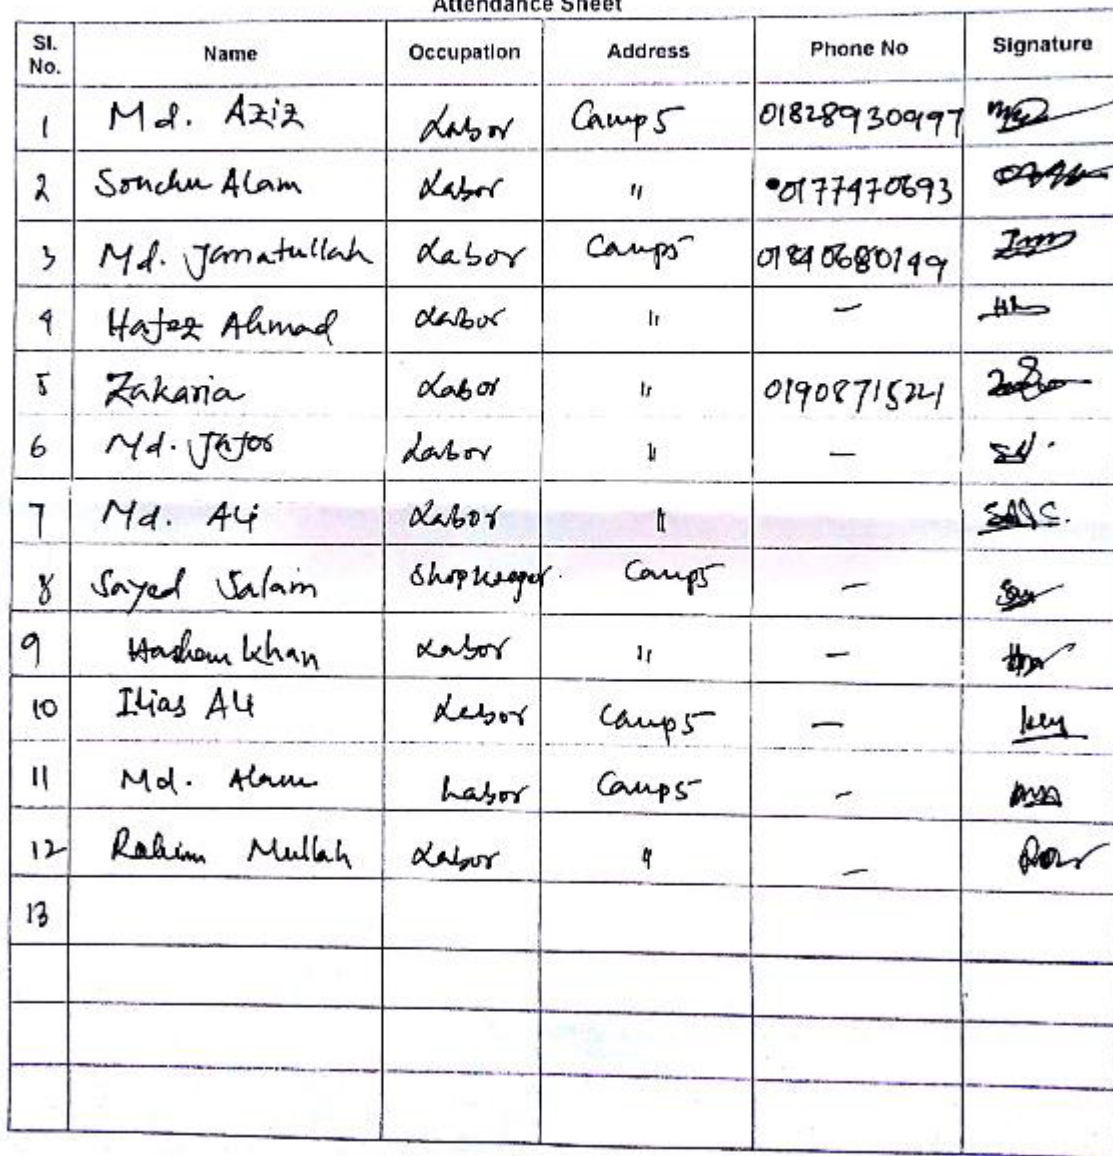 Attendance Sheet
Sl. No. Name Occupation Address Phone No Signature
1 Md. Aziz Labor Camp 5 01828930997
2 Sonchu Alam Labor " 0177470693
3 Md. Jamatullah Labor Camp5 01840680149
4 Hafez Ahmad Labor " –
5 Zakaria Labor " 01908715221
6 Md. Jafor Labor " –
7 Md. Ali Labor "
8 Sayed Salam Shopkeeper. Camp5 –
9 Hashem Khan Labor " –
10 Ilias Ali Labor Camp5 –
11 Md. Alam Labor Camp5 –
12 Rahim Mullah Labor " –
13